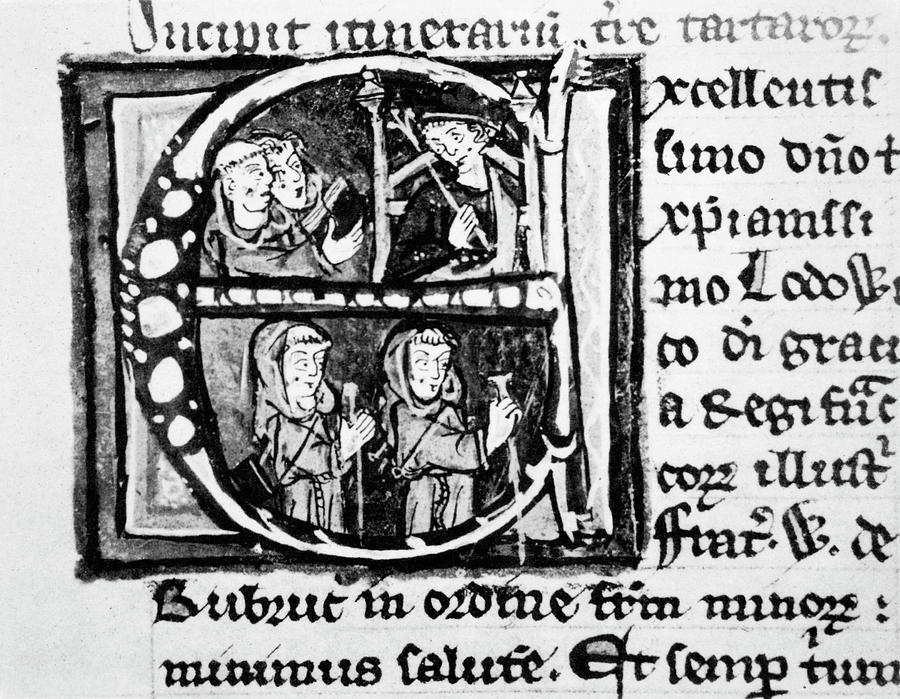 Incipit itinerariū t̄re tartaroꝝ.
Excellentis
simo dn̄o ⁊
xp̄ianissi
mo Lodowi
co di graci
a Regi frāc
coꝝ illustʳ
ffratʳ. W. de
Rubruc in ordine frm̄ minoꝝ :
minimus salutē. Et semꝑ tͥum